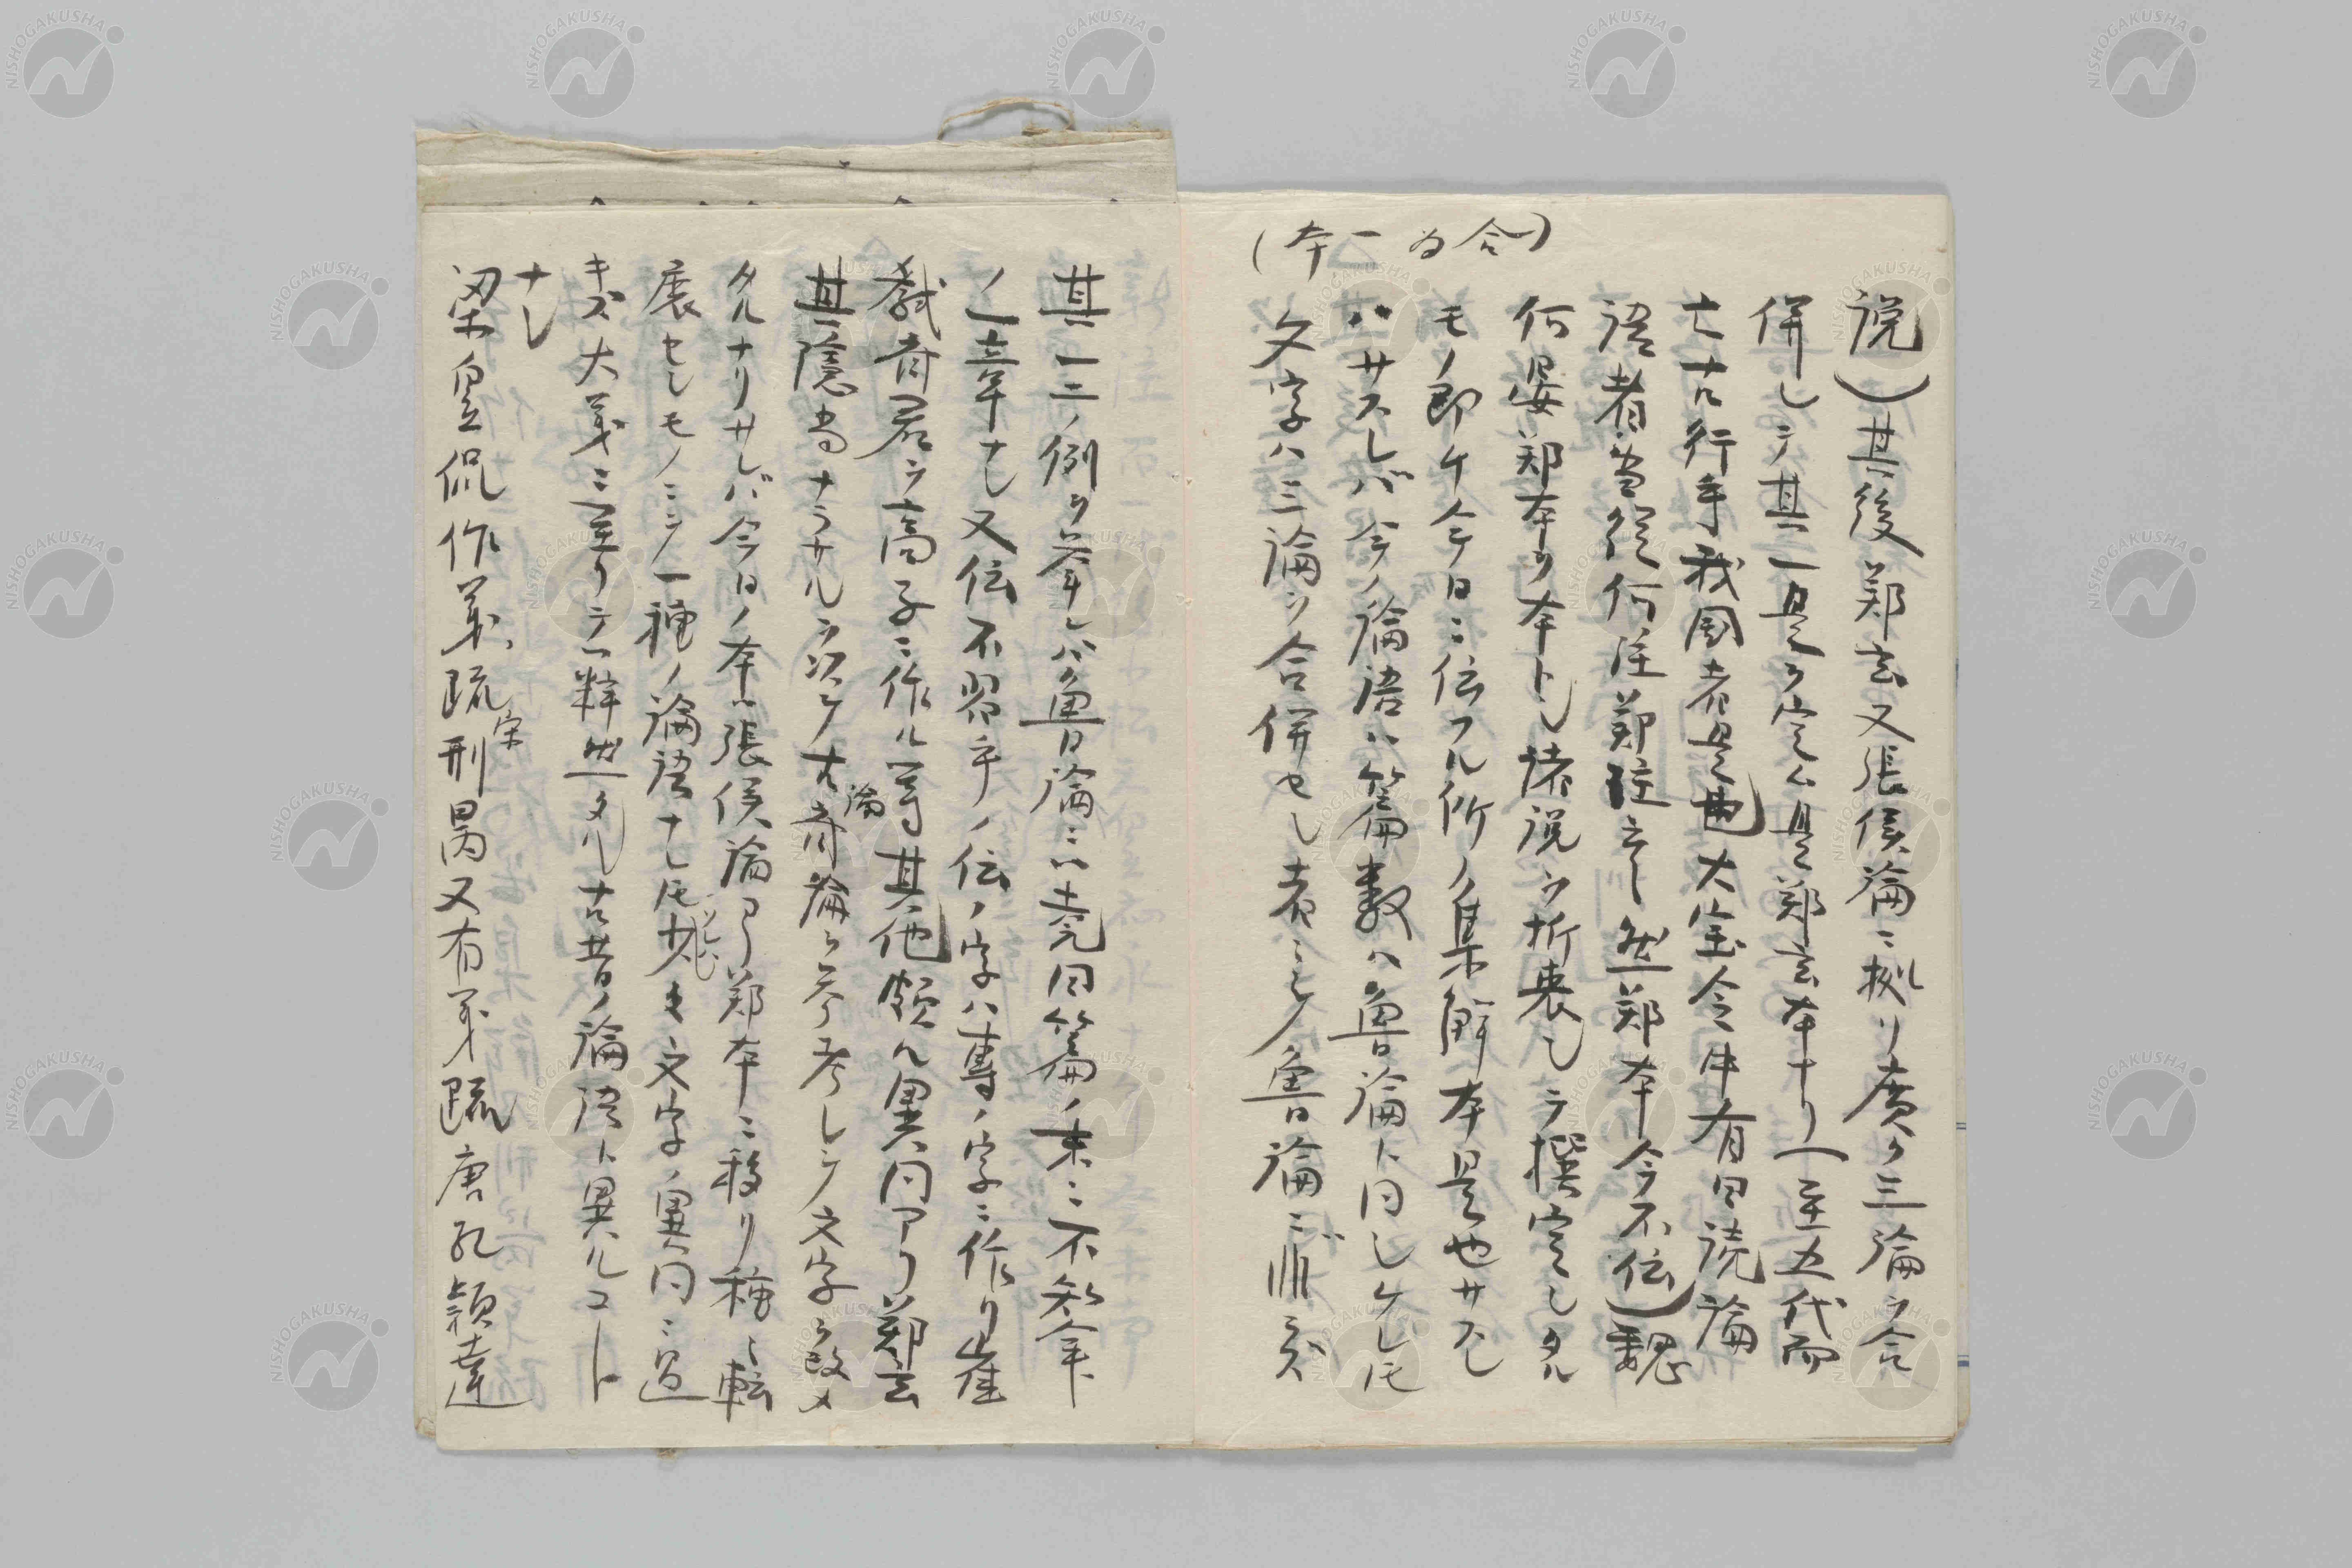 (本一 為合)
説)其後鄭玄又張侯論ニ拠リ広ク三論ヲ合
併シテ其一是ヲ定ム是鄭玄本ナリ(至五代而
亡古行乎我国者是也大宝令中有曰読論
語者皆従何注鄭注云々然鄭本今不伝)魏
何晏鄭本ヲ本トシ諸説ヲ折衷シテ撰定シタル
モノ即ケ今日ニ伝フル所ノ集解本是也サスレ
ハサスレバ今ノ論語ハ篇数ハ魯論ト同シケレトモ
文字ハ三論ヲ合併セシ者ニシテ魯論ニ非ス
其一二ノ例ヲ挙レハ魯論ニハ堯曰篇ノ末ニ不知命
ノ章ナシ又伝不習乎ノ伝ノ字ハ専ノ字ニ作リ崔
弑斉君ヲ高子ニ作ル等其他頗ル異同アリ鄭玄
其隠当ナラサルヲ以テ古論斉論ヲ参考シテ文字ヲ改メ
タルナリサレバ今日ノ本ハ張侯論ヨリ鄭本ニ移リ種々転
展セシモノニシテ一種ノ論語ナレトモ少シキ文字ノ異同ニ過
キズ大義ニ至リテハ粋然タル古昔ノ論語ト異ルコト
ナシ
梁皇侃作義疏宋刑昺又有義疏唐孔頴達
NISHOGAKUSHA